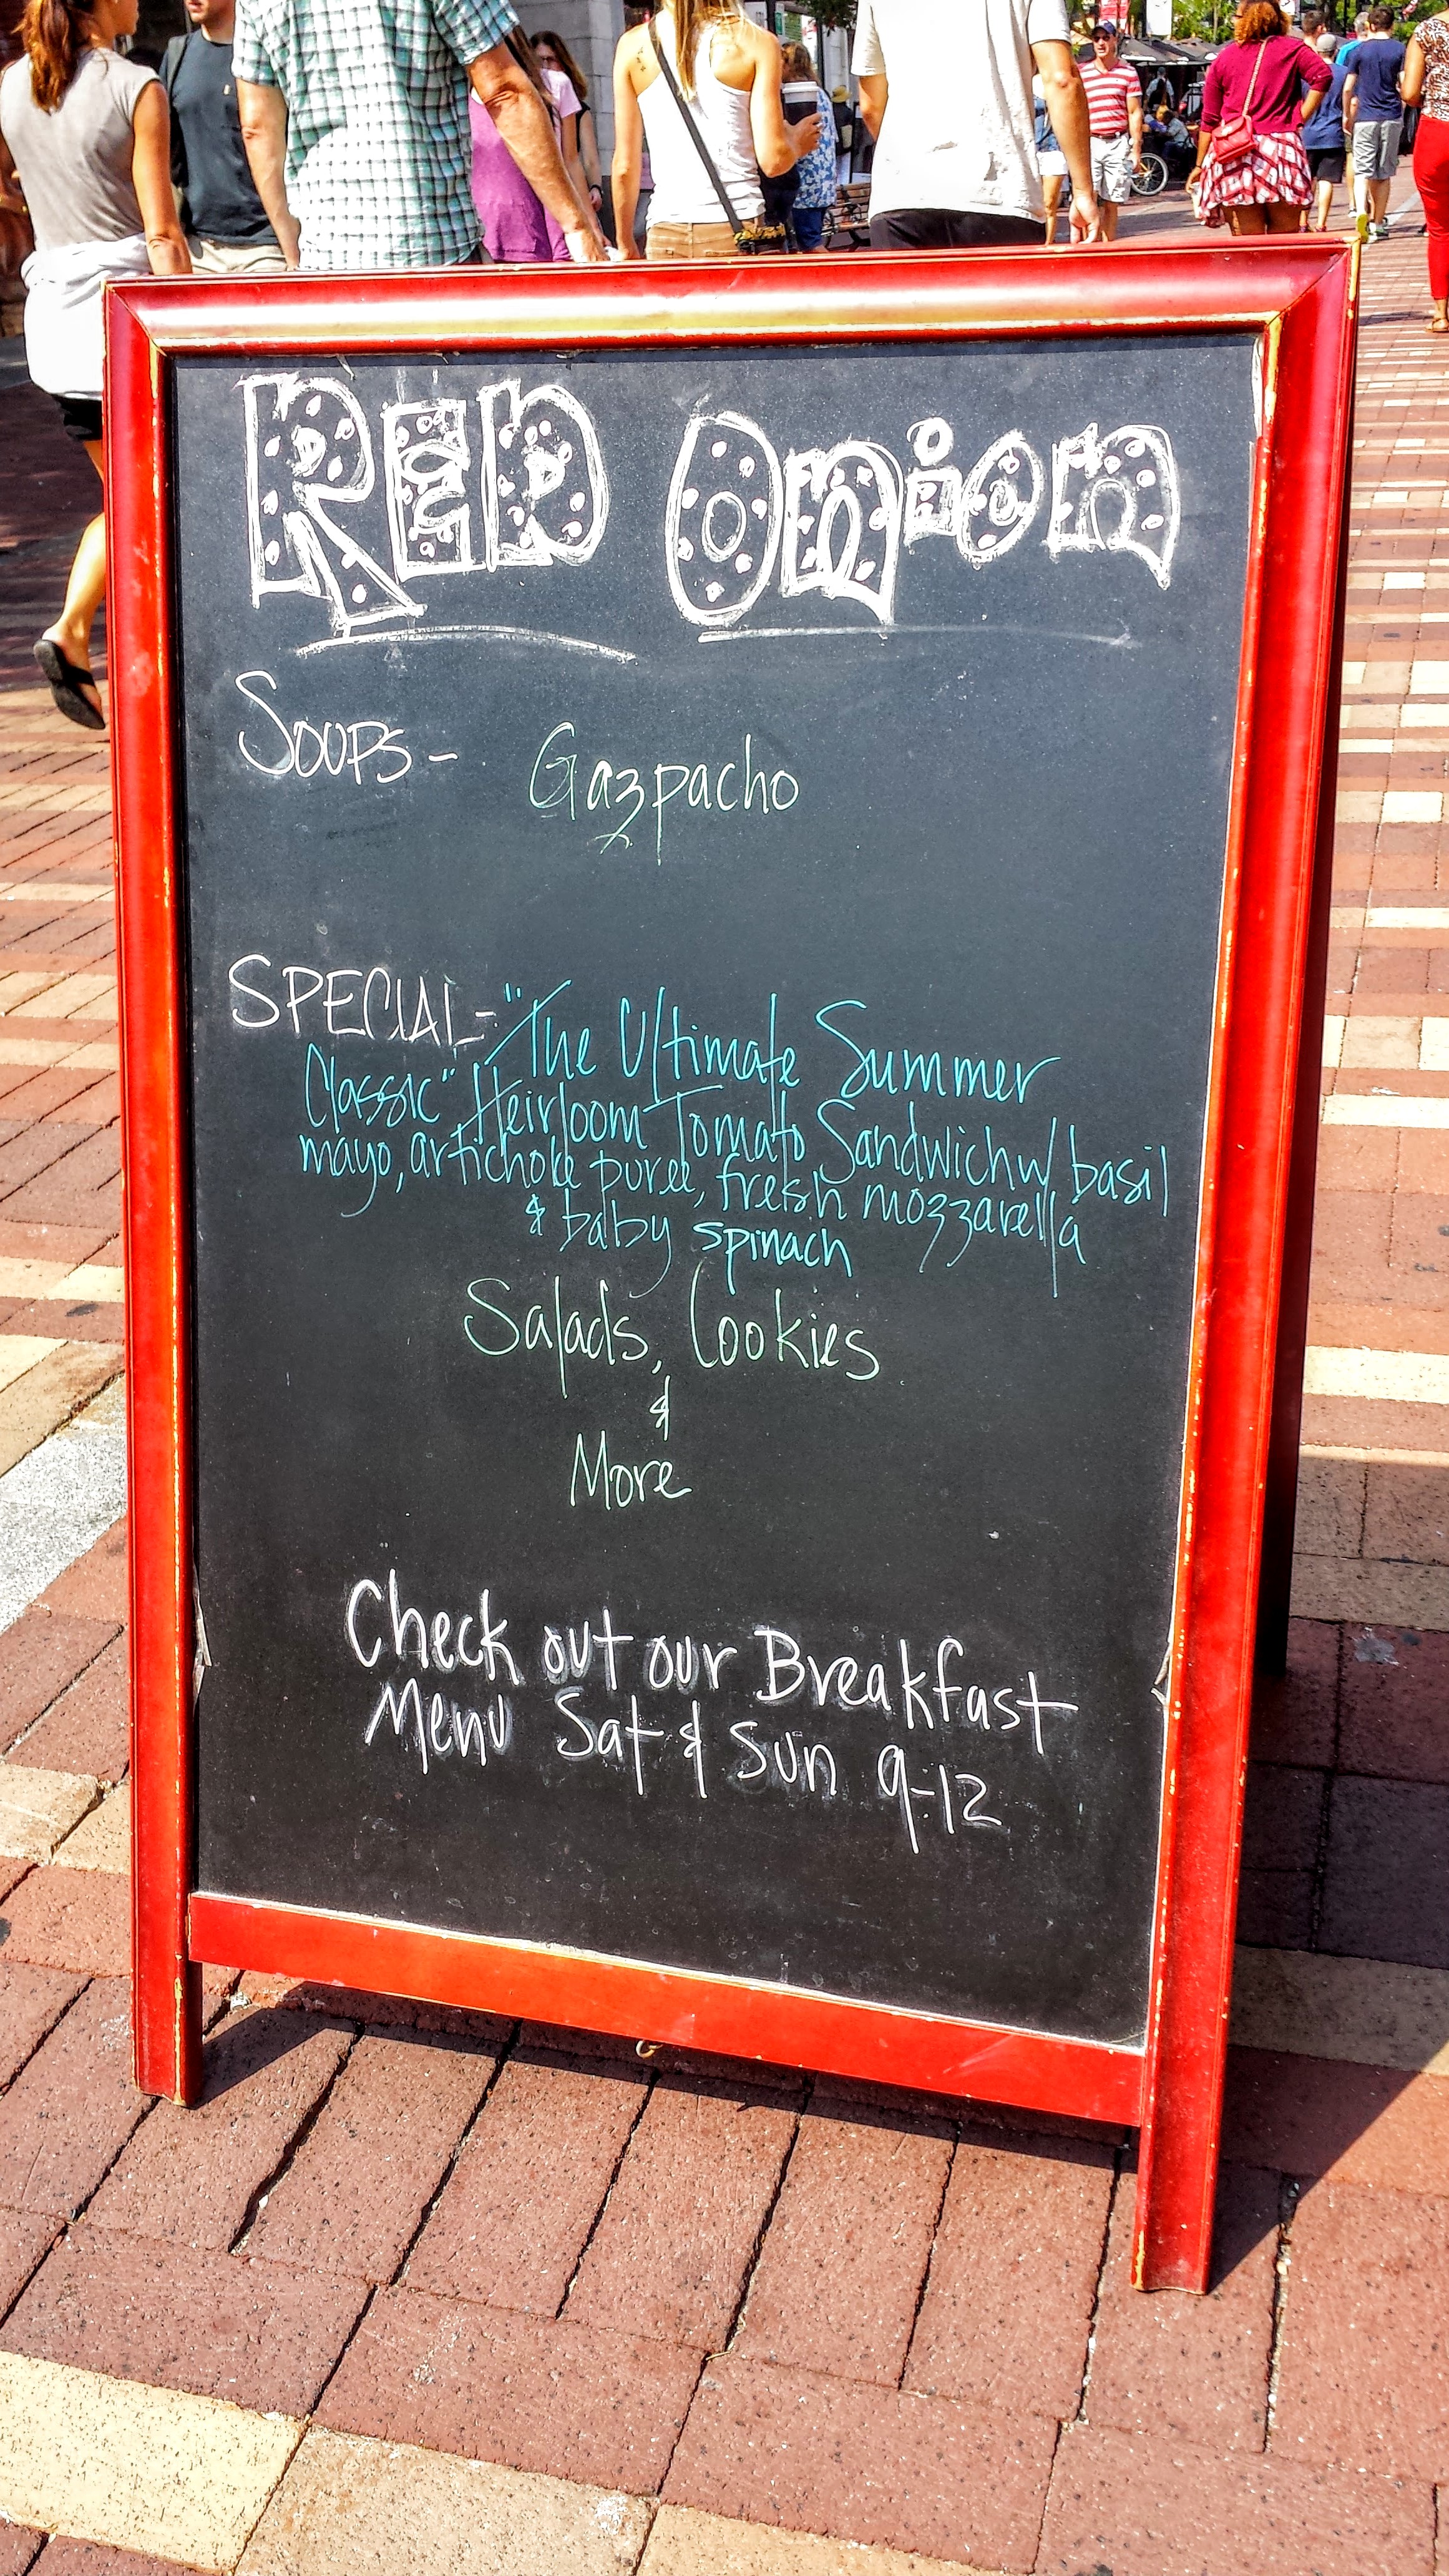 RED Onion
SOUPS - Gazpacho
SPECIAL - "The Ultimate Summer
Classic" Heirloom Tomato Sandwich w/ basil
mayo, artichoke puree, fresh mozzarella
& baby spinach
Salads, Cookies
&
More
Check out our Breakfast
Menu Sat & Sun 9-12